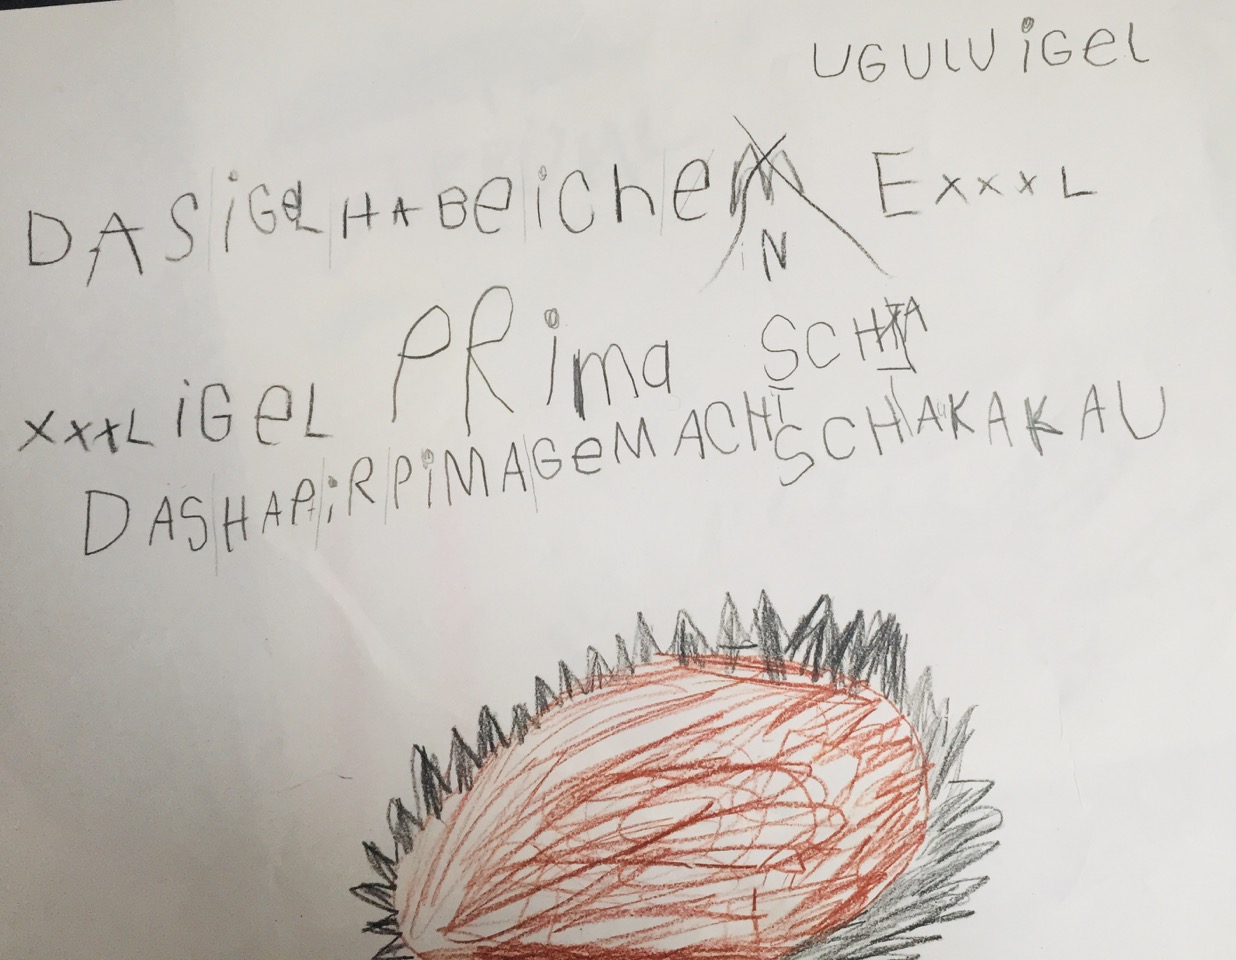 UGULU iGeL
DAS iGeL HABe iCheN ExxxL
xxxL iGeL PRima SCHA
DAS HAP iR PiMA GeMACHT SCHAKAKAKAU